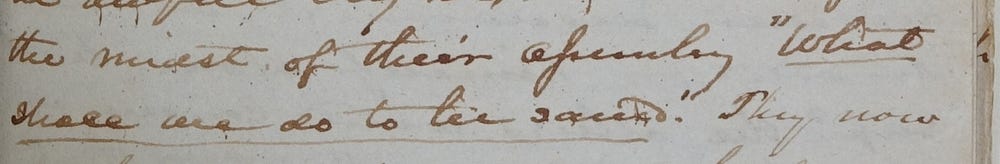 the midst of their assembly "What
shall we do to be saved." They now